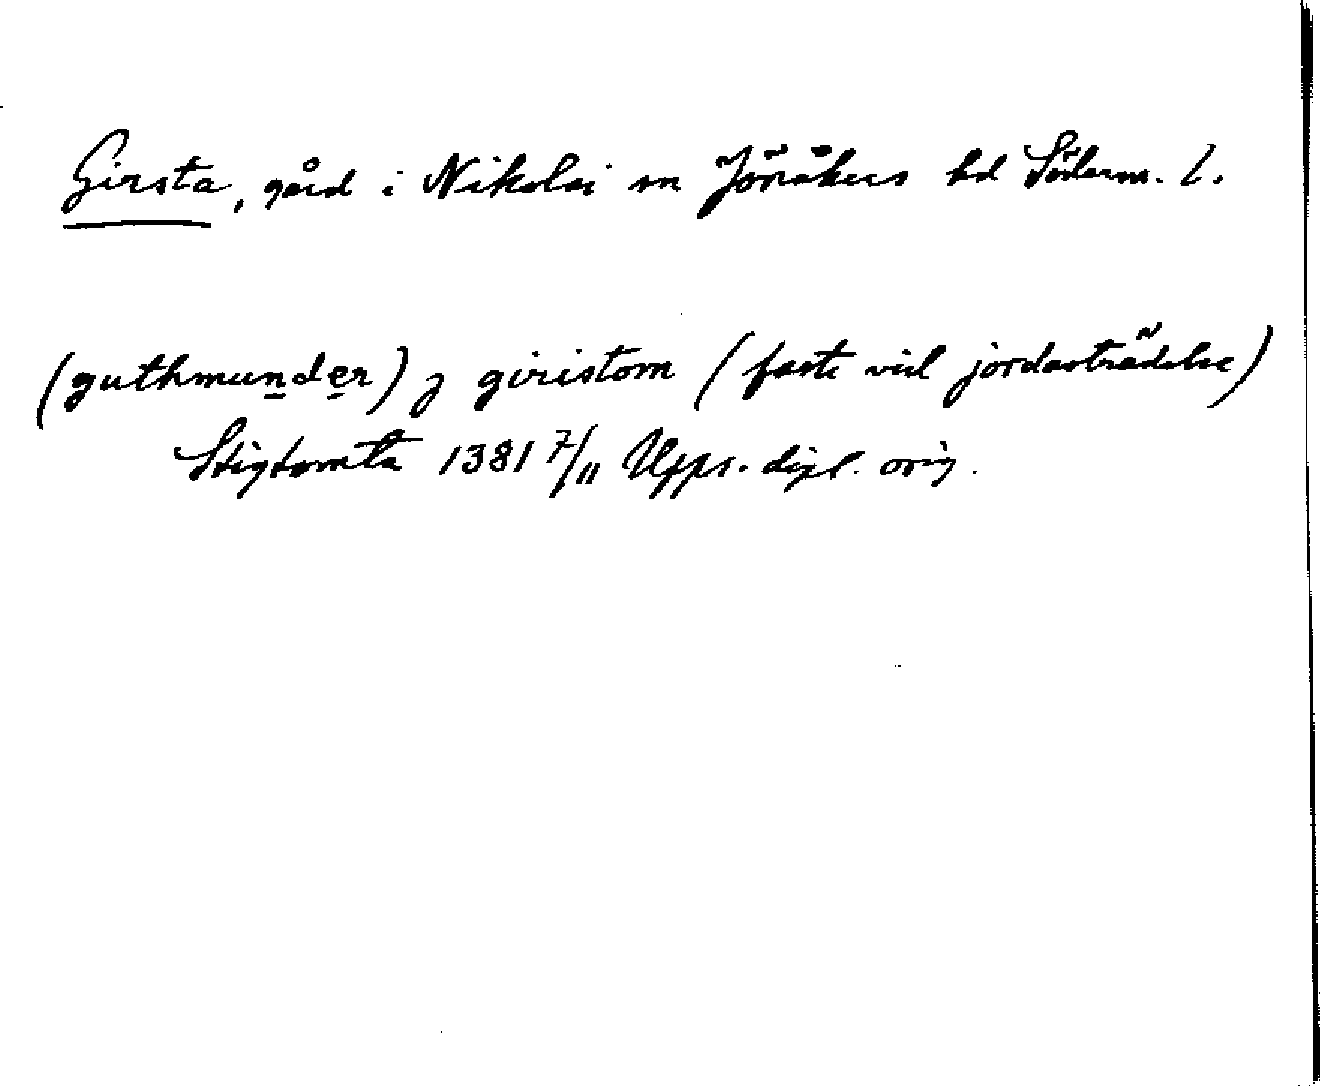 Girsta, gård i Nikolai sn Jönåkers hd Söderm. L.
(guthmunder) j giristom (faste vid jordaöträdelse)
Stigtomta 1381 7/11 Upps. dipl. orig.